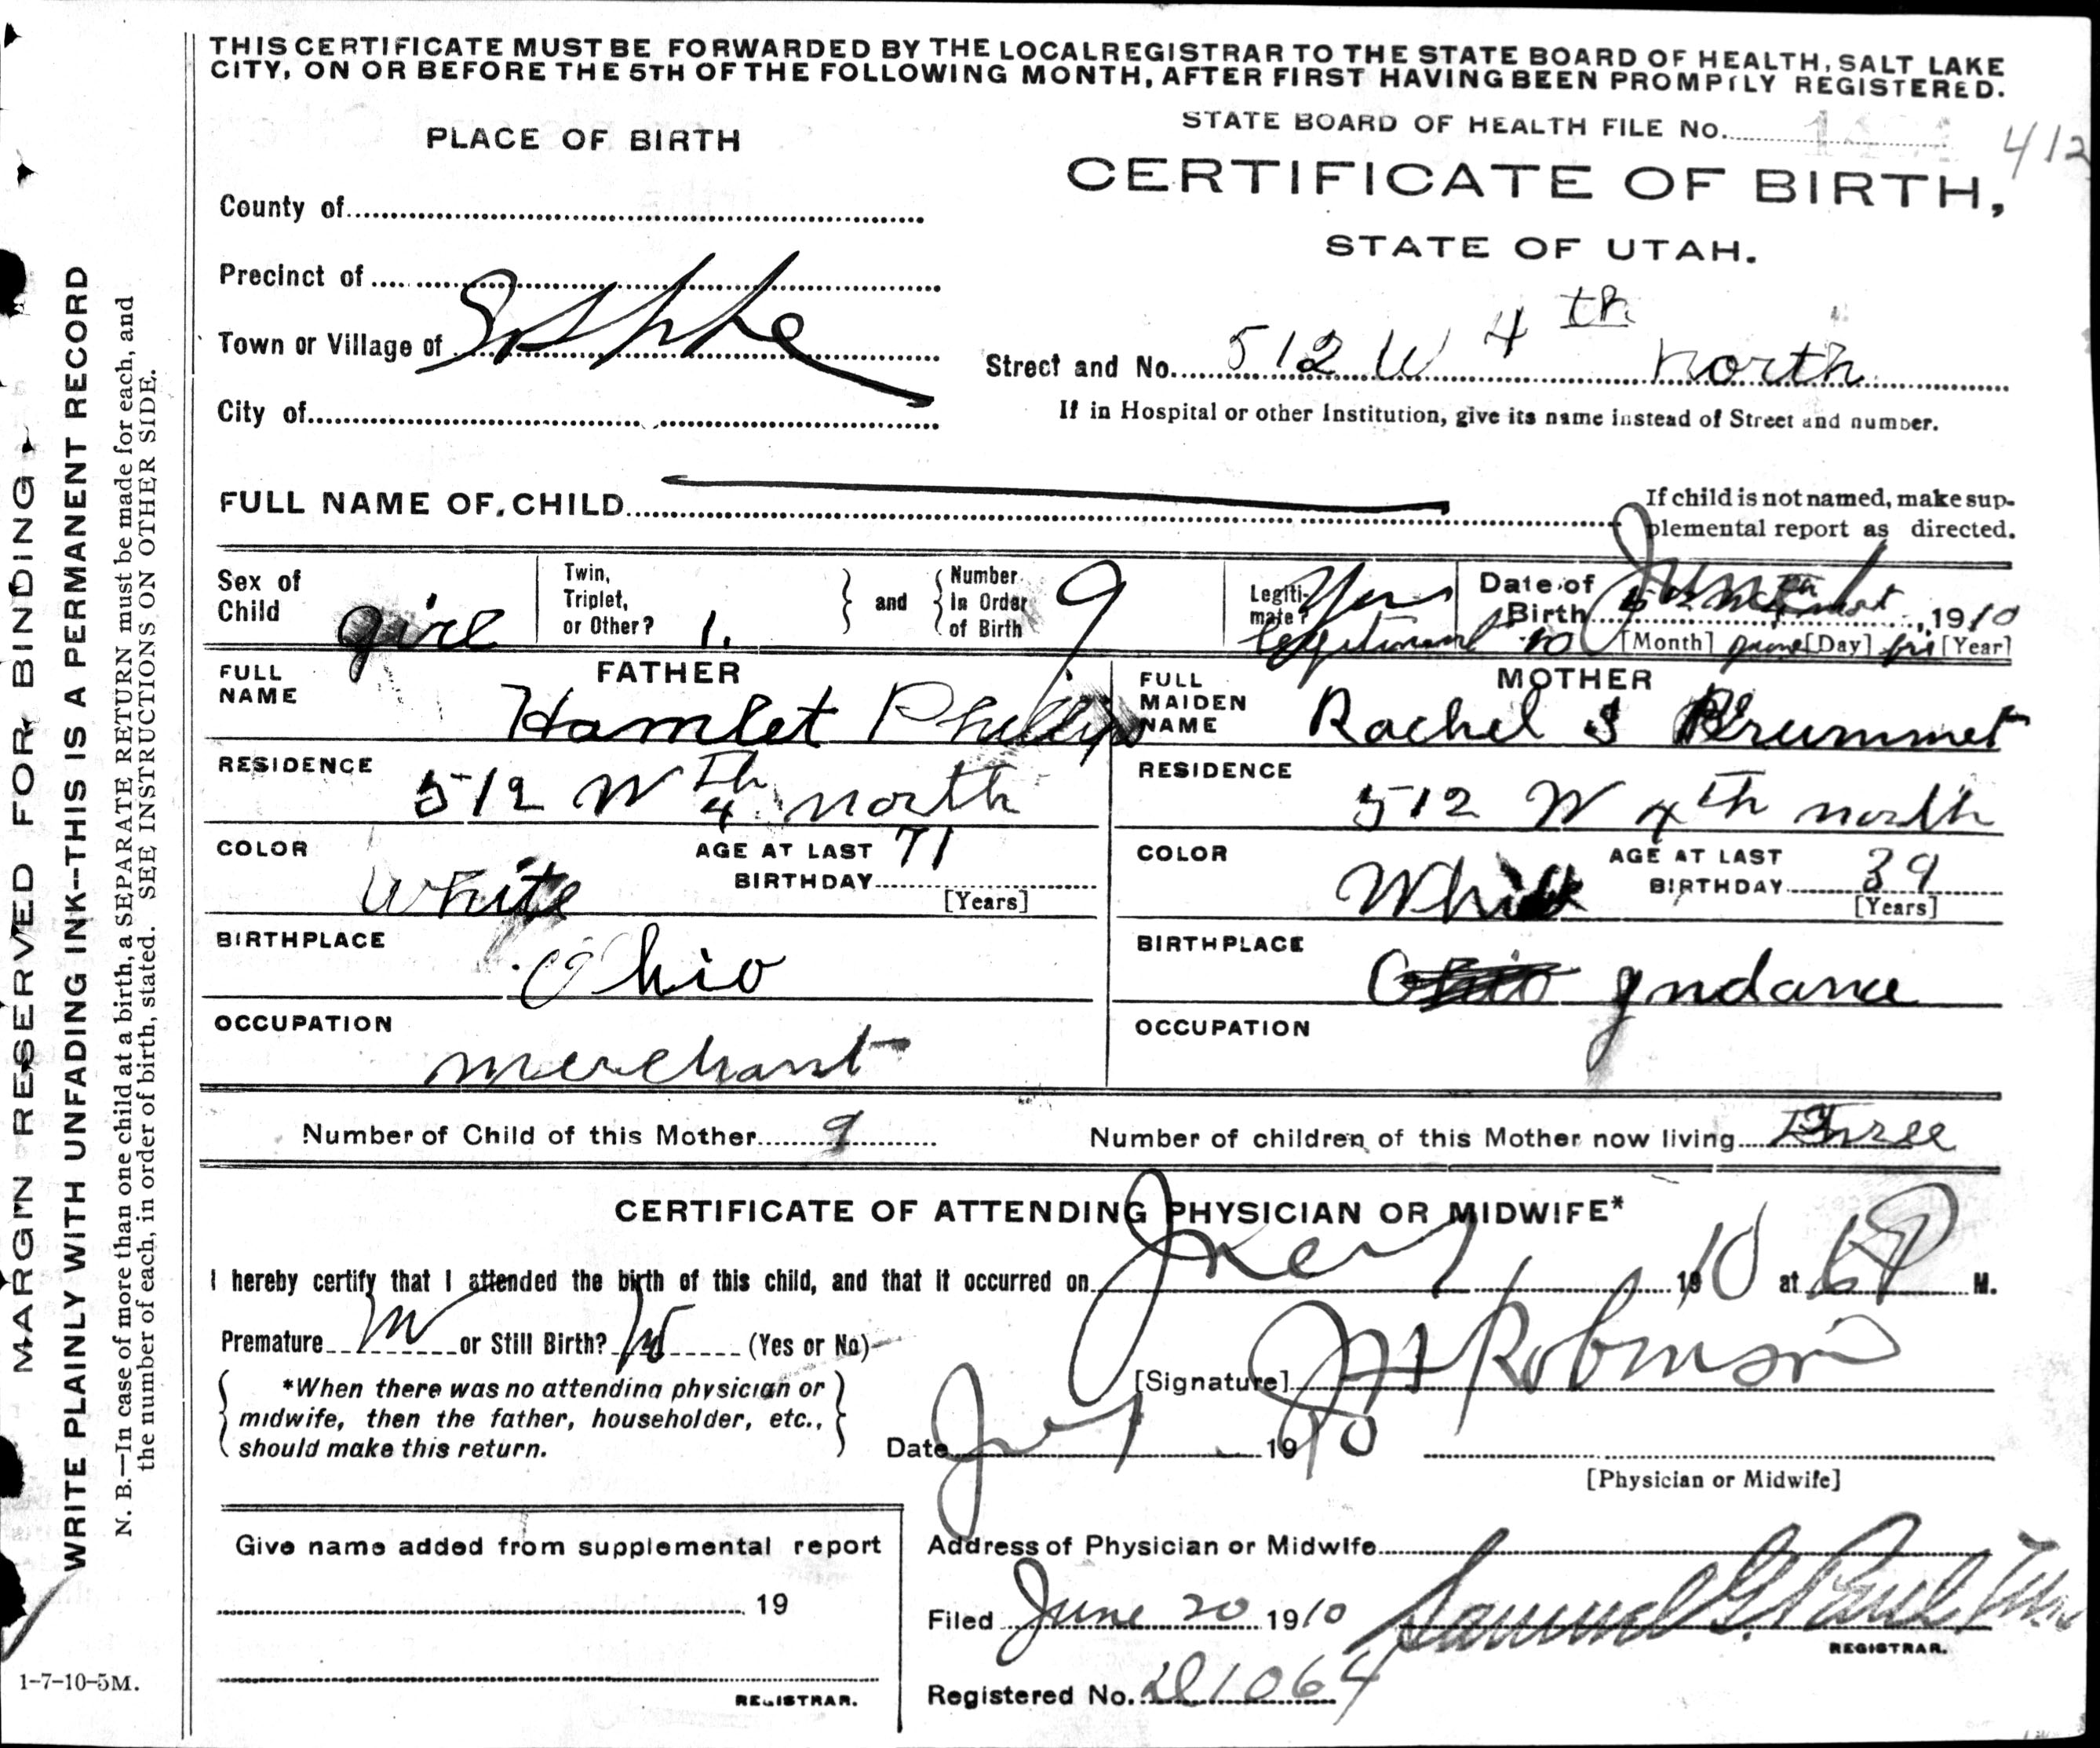 THIS CERTIFICATE MUST BE FORWARDED BY THE LOCAL REGISTRAR TO THE STATE BOARD OF HEALTH, SALT LAKE
CITY, ON OR BEFORE THE 5TH OF THE FOLLOWING MONTH, AFTER FIRST HAVING BEEN PROMPTLY REGISTERED.
STATE BOARD OF HEALTH FILE No. 412
PLACE OF BIRTH
CERTIFICATE OF BIRTH,
STATE OF UTAH.
County of
Precinct of
Town or Village of
City of
Street and No. 512 W 4th north
If in Hospital or other Institution, give its name instead of Street and number.
FULL NAME OF CHILD
If child is not named, make sup-
plemental report as directed.
Sex of Child girl
Twin, Triplet, or Other? 1.
and
Number In Order of Birth 9
Legiti-mate? Yes
Date of Birth June 1910
[Month] [Day] [Year]
FATHER
FULL NAME Hamlet Phillips
RESIDENCE 512 W 4th north
COLOR White
AGE AT LAST BIRTHDAY 71
[Years]
BIRTHPLACE Ohio
OCCUPATION merchant
MOTHER
FULL MAIDEN NAME Rachel S Brummet
RESIDENCE 512 W 4th north
COLOR White
AGE AT LAST BIRTHDAY 39
[Years]
BIRTHPLACE Ohio
OCCUPATION
Number of Child of this Mother 9
Number of children of this Mother now living Three
CERTIFICATE OF ATTENDING PHYSICIAN OR MIDWIFE*
I hereby certify that I attended the birth of this child, and that it occurred on 1910 at 6 P M.
Premature or Still Birth? (Yes or No)
*When there was no attending physician or
midwife, then the father, householder, etc.,
should make this return.
[Signature] Robinson
Date 1910
[Physician or Midwife]
Give name added from supplemental report
19
REGISTRAR.
Address of Physician or Midwife
Filed June 20 1910 Samuel G. Paul
REGISTRAR.
Registered No. 1064
MARGIN RESERVED FOR BINDING
WRITE PLAINLY WITH UNFADING INK--THIS IS A PERMANENT RECORD
N. B.—In case of more than one child at a birth, a SEPARATE RETURN must be made for each, and
the number of each, in order of birth, stated. SEE INSTRUCTIONS ON OTHER SIDE.
1-7-10-5M.